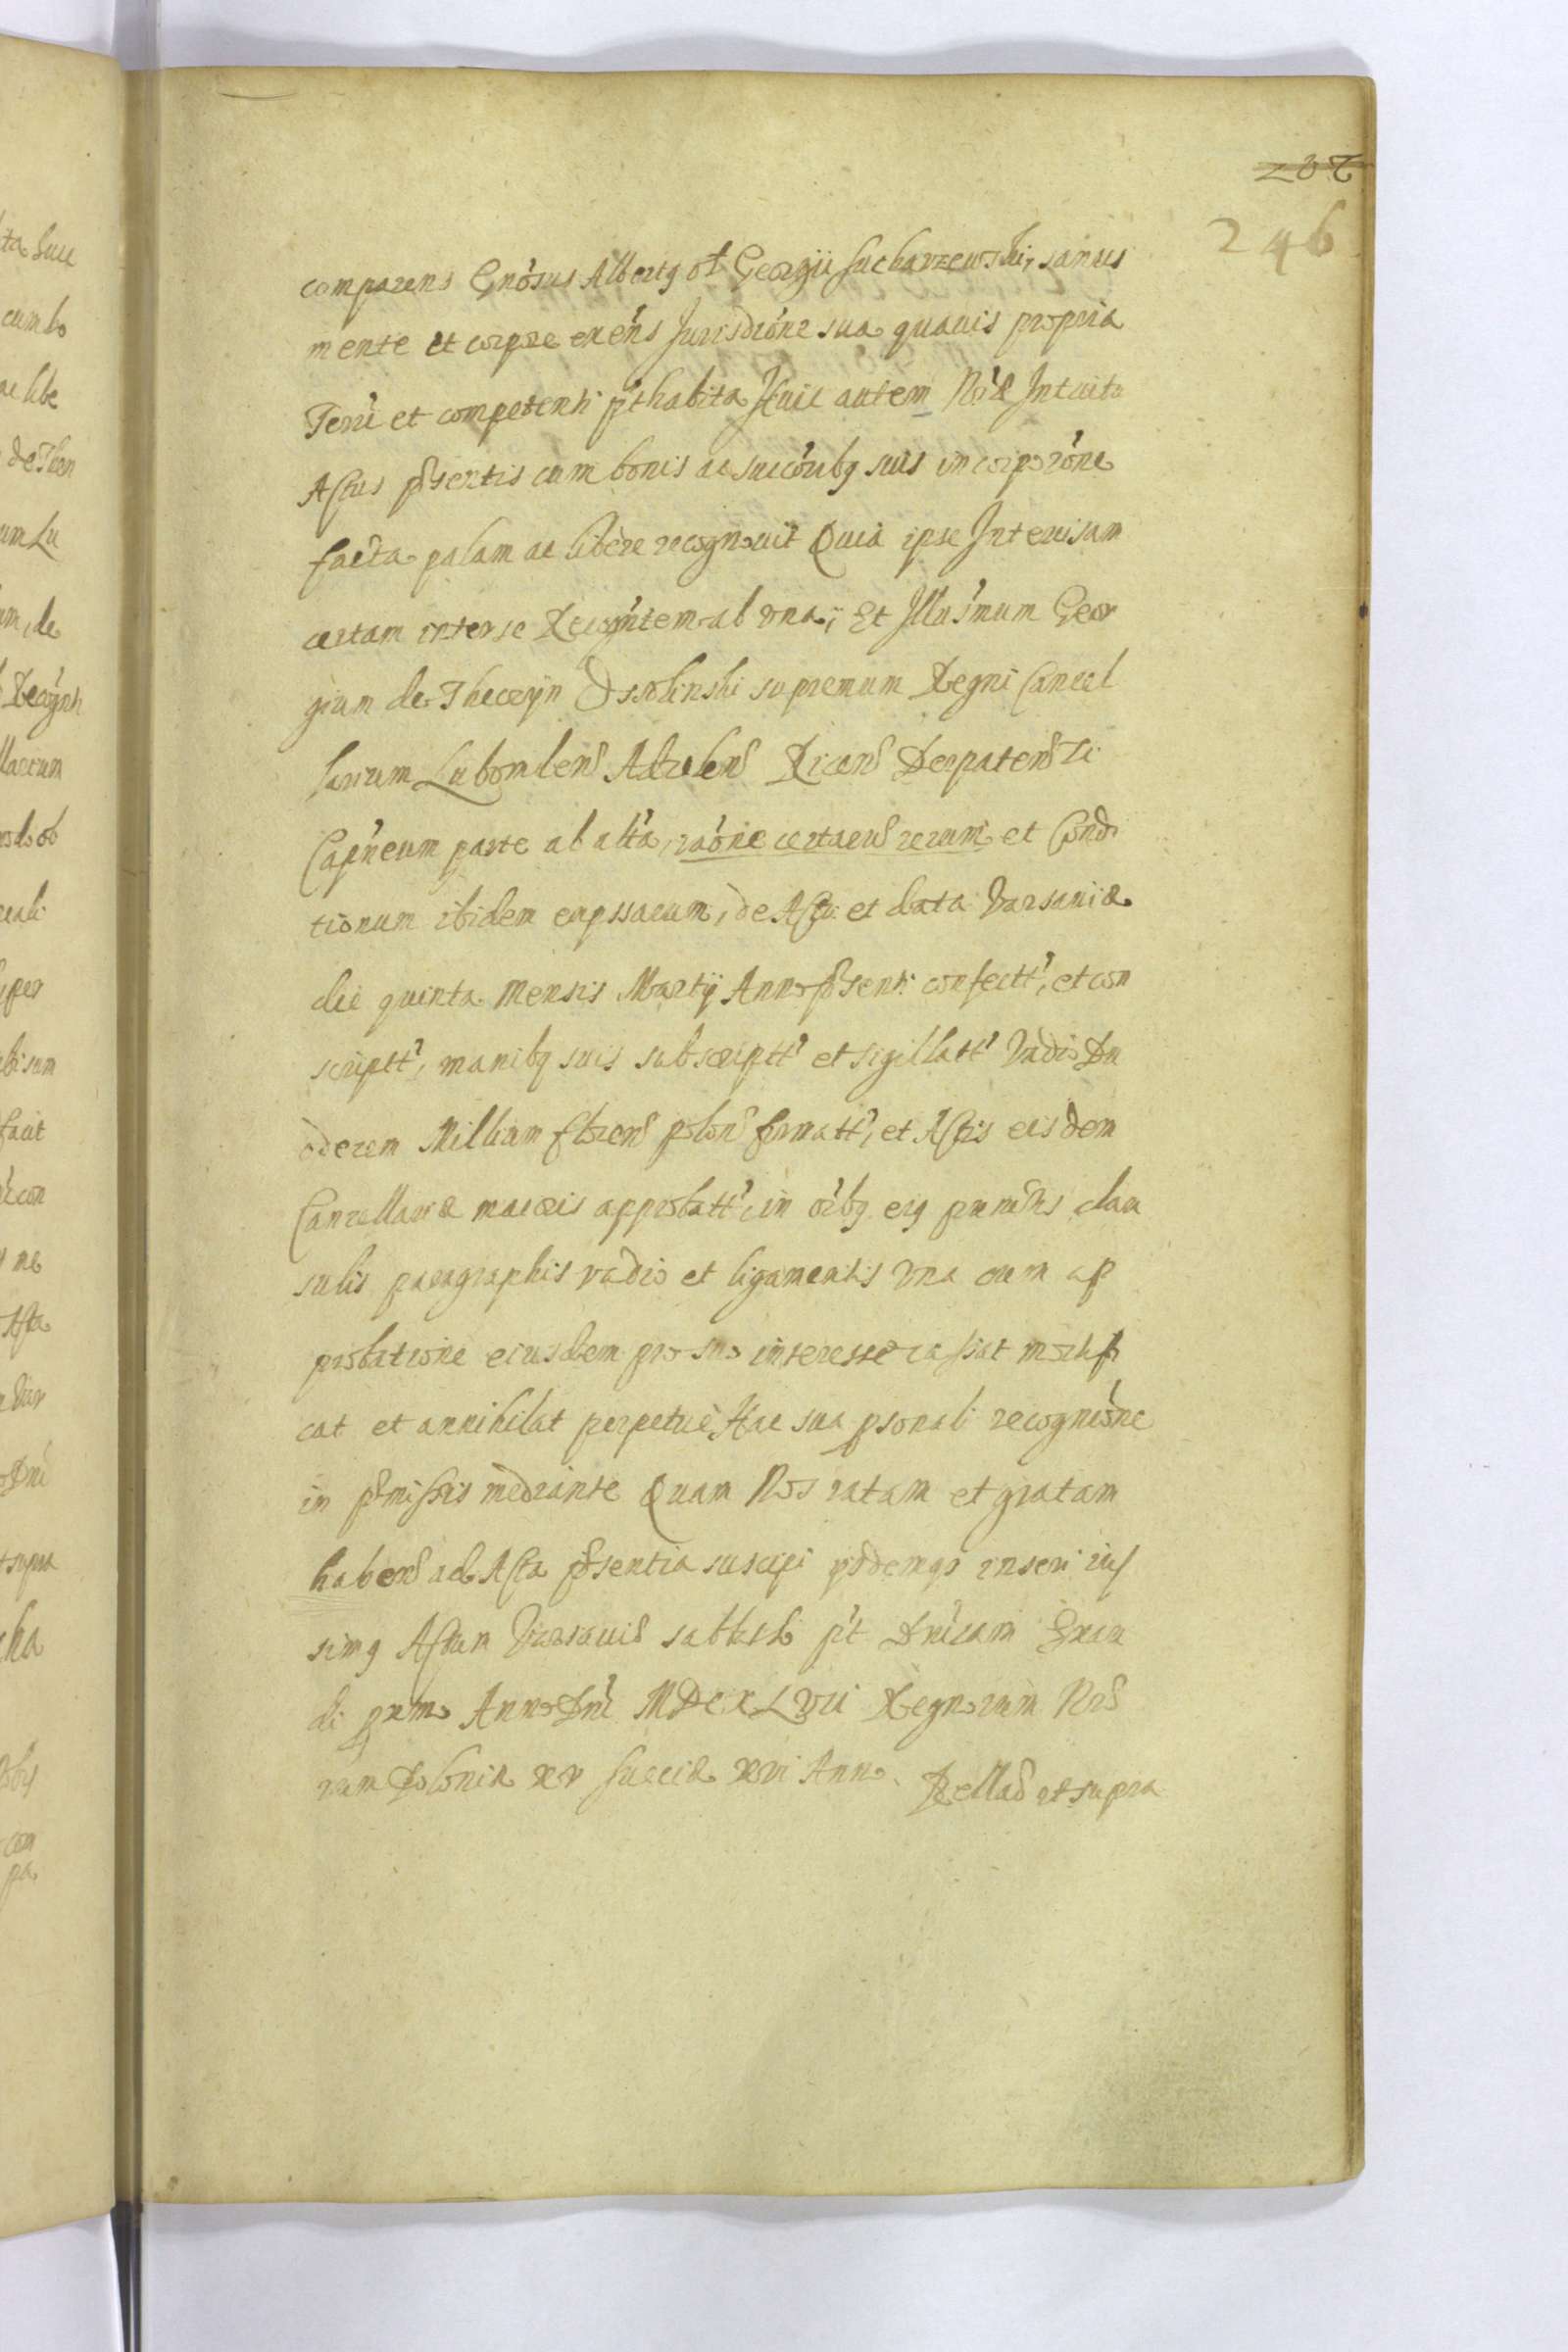 207
246
comparens Gnõsus Albertg ol Georgii Sucharzewski, sanus
mente et corpore exẽns Jurisdiõne sua quavis propria
Terrĩ et competenti pthabita Huic autem Nrẽ Intuitu
Actus psentis cum bonis ac succõribg suis incorporõne
facta palam ac libere recognovit Quia ipse Intercisam
certam inter se Recogñtem ab una, Et Illus̃mum Geor
gium de Theczyn Ossolinski supremum Regni Cancel
larium Lubomlens Adzelens Ricens Derpatens Zc
Capñeum parte ab altã, raõne certarum rerum et Condi
tionum ibidem expssarum, de Actu et data Varsaviæ
die quinta Mensis Martij Anno psenti confectt, et con
scriptt, manibg suis subscriptt et sigillatt Vadio Du
odecem Millium floren polon firmatt, et Actis eisdem
Cancellariæ maioris approbatt, in oĩbg eig punctis clau
sulis paragraphis vadio et ligamentis una cum ap
probatione eiusdem pro suo interesse cassat mortifi
cat et annihilat perpetue Hac sua psonali recogniõne
in pmissis mediante Quam Nos ratam et gratam
haben ad Acta psentia suscipi ijsdemqz inseri iuſ
simg Actum Varsavię sabbatho pt Dñicam Exau
di prox Anno Dnĩ MDCXLVII Regnorum Nrõ
rum Poloniæ XV Sueciæ XVI Anno. Rellaõ ut supra